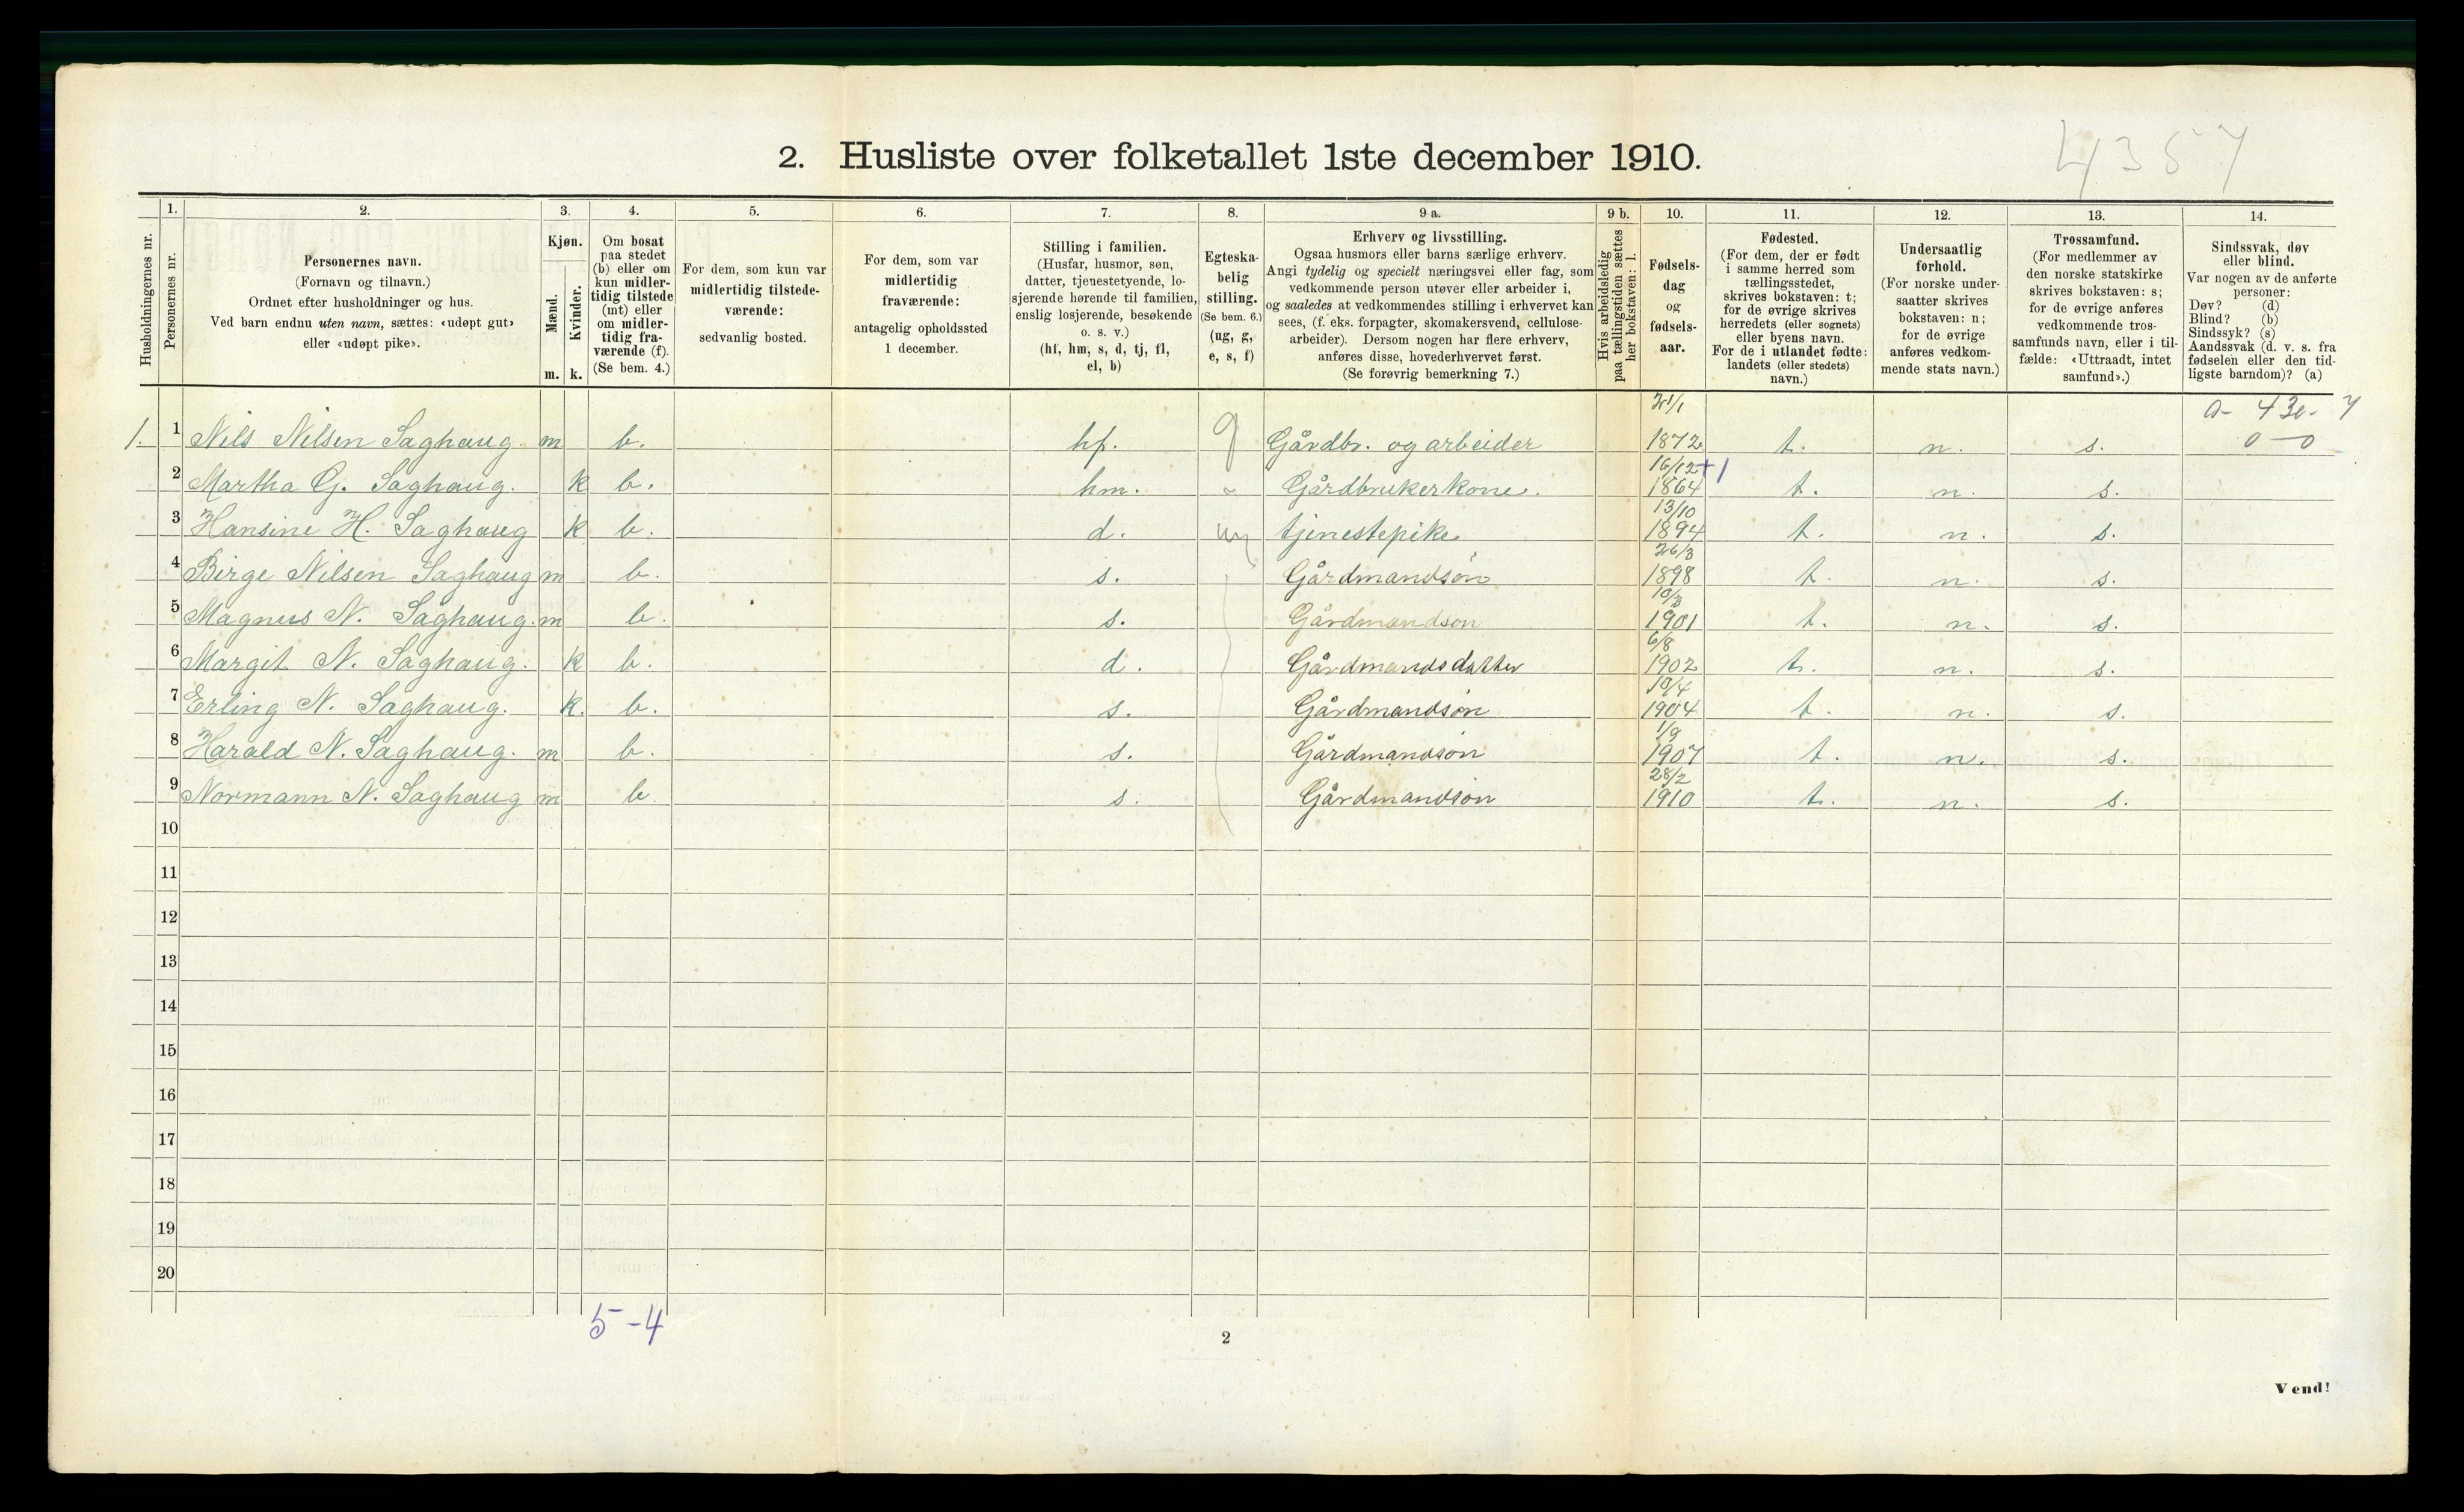 4357
2. Husliste over folketallet 1ste december 1910.
Husholdningernes nr.
1. Personernes nr.
2. Personernes navn.
(Fornavn og tilnavn.)
Ordnet efter husholdninger og hus.
Ved barn endnu uten navn, sættes: «udøpt gut»
eller «udøpt pike».
3. Kjøn.
Mænd. m.
Kvinder. k.
4. Om bosat
paa stedet
(b) eller om
kun midler-
tidig tilstede
(mt) eller
om midler-
tidig fra-
værende (f).
(Se bem. 4.)
5. For dem, som kun var
midlertidig tilstede-
værende:
sedvanlig bosted.
6. For dem, som var
midlertidig
fraværende:
antagelig opholdssted
1 december.
7. Stilling i familien.
(Husfar, husmor, søn,
datter, tjenestetyende, lo-
sjerende hørende til familien,
enslig losjerende, besøkende
o. s. v.)
(hf, hm, s, d, tj, fl,
el, b)
8. Egteska-
belig
stilling.
(Se bem. 6.)
(ug, g,
e, s, f)
9 a. Erhverv og livsstilling.
Ogsaa husmors eller barns særlige erhverv.
Angi tydelig og specielt næringsvei eller fag, som
vedkommende person utøver eller arbeider i,
og saaledes at vedkommendes stilling i erhvervet kan
sees, (f. eks. forpagter, skomakersvend, cellulose-
arbeider). Dersom nogen har flere erhverv,
anføres disse, hovederhvervet først.
(Se forøvrig bemerkning 7.)
9 b. Hvis arbeidsledig
paa tællingstiden sættes
her bokstaven: l.
10. Fødsels-
dag
og
fødsels-
aar.
11. Fødested.
(For dem, der er født
i samme herred som
tællingsstedet,
skrives bokstaven: t;
for de øvrige skrives
herredets (eller sognets)
eller byens navn.
For de i utlandet fødte:
landets (eller stedets)
navn.)
12. Undersaatlig
forhold.
(For norske under-
saatter skrives
bokstaven: n;
for de øvrige
anføres vedkom-
mende stats navn.)
13. Trossamfund.
(For medlemmer av
den norske statskirke
skrives bokstaven: s;
for de øvrige anføres
vedkommende tros-
samfunds navn, eller i til-
fælde: «Uttraadt, intet
samfund».)
14. Sindssvak, døv
eller blind.
Var nogen av de anførte
personer:
Døv? (d)
Blind? (b)
Sindssyk? (s)
Aandssvak (d. v. s. fra
fødselen eller den tid-
ligste barndom)? (a)
1. 1 Nils Nilsen Saghaug. m b. hf. g Gårdbr. og arbeider 21/1 1872 t. n. s. 0 - 0
2 Martha G. Saghaug. k b. hm. Gårdbrukerkone. 16/12 1864 t. n. s.
3 Hansine H. Saghaug k b. d. ug tjenestepike 13/10 1894 t. n. s.
4 Birge Nilsen Saghaug m b. s. Gårdmandsøn 26/3 1898 t. n. s.
5 Magnus N. Saghaug. m b. s. Gårdmandsøn 10/3 1901 t. n. s.
6 Margit N. Saghaug. k b. d. Gårdmandsdatter 6/8 1902 t. n. s.
7 Erling N. Saghaug. k. b. s. Gårdmandsøn 10/4 1904 t. n. s.
8 Harald N. Saghaug. m b. s. Gårdmandsøn 1/9 1907 t. n. s.
9 Normann N. Saghaug m b. s. Gårdmandsøn 28/2 1910 t. n. s.
10
11
12
13
14
15
16
17
18
19
20
5-4
2
Vend!